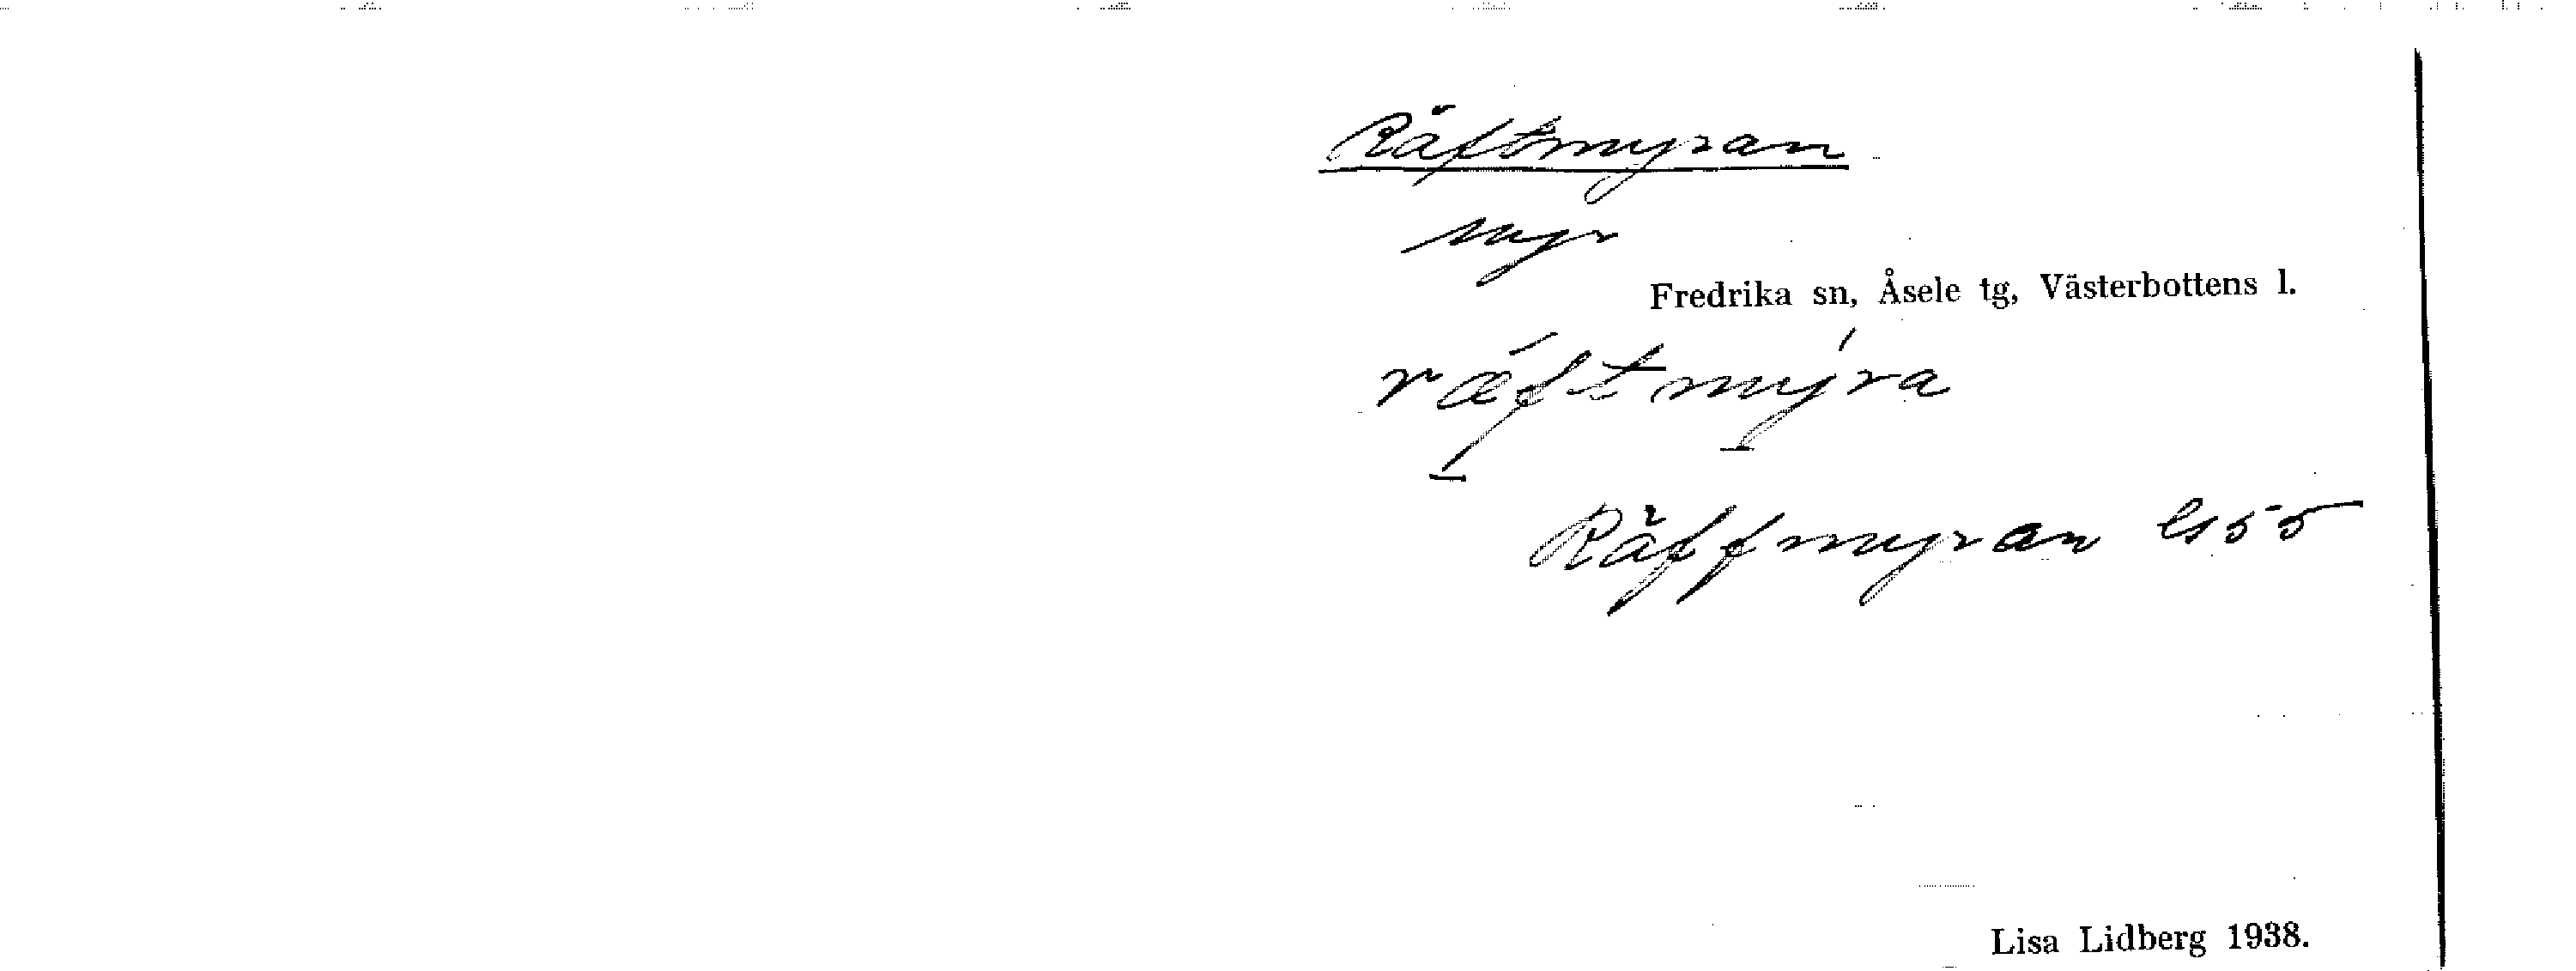 Räftmyran
myr
Fredrika sn, Åsele tg, Västerbottens l.
ræftmyra
Räffmyran Gs 55
Lisa Lidberg 1938.